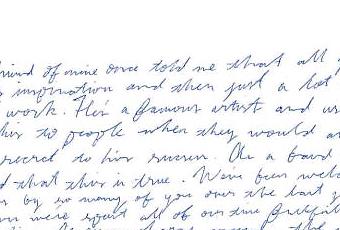 friend of mine once told me that all
inspiration and then just a lot
work. He's a famous artist and
this to people when they would
secret to his success. As a band
that this is true. We've been
by so many of you over the last
we've spent all of our time